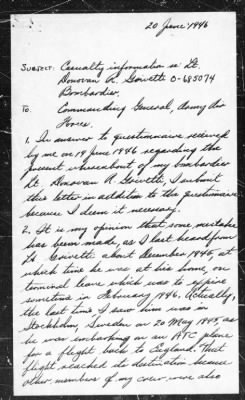 20 June 1946
SUBJECT: Casualty information re Lt.
Donovan R. Goivette O-685074
Bombardier.
TO: Commanding General, Army Air
Forces.
1. In answer to questionnaire received
by me on 19 June 1946 regarding the
present whereabout of my bombardier
Lt. Donovan R. Goivette, I submit
this letter in addition to the questionnaire
because I deem it necessary.
2. It is my opinion that some mistake
has been made, as I last heard from
Lt. Goivette about December 1945, at
which time he was at his home, on
terminal leave which was to expire
sometime in February 1946. Actually,
the last time I saw him was in
Stockholm, Sweden on 20 May 1945, as
he was embarking on an ATC plane
for a flight back to England. That
flight reached its destination because
other members of my crew were also